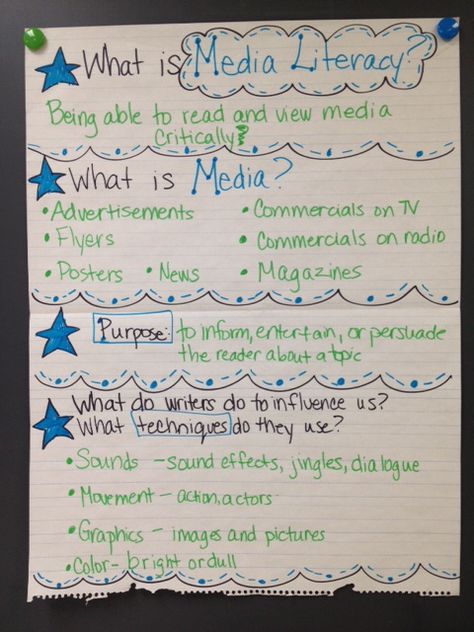 What is Media Literacy?
Being able to read and view media
critically!
What is Media?
• Advertisements • Commercials on TV
• Flyers • Commercials on radio
• Posters • News • Magazines
Purpose: to inform, entertain, or persuade
the reader about a topic
What do writers do to influence us?
What techniques do they use?
• Sounds – sound effects, jingles, dialogue
• Movement – action, actors
• Graphics – images and pictures
• Color – bright or dull